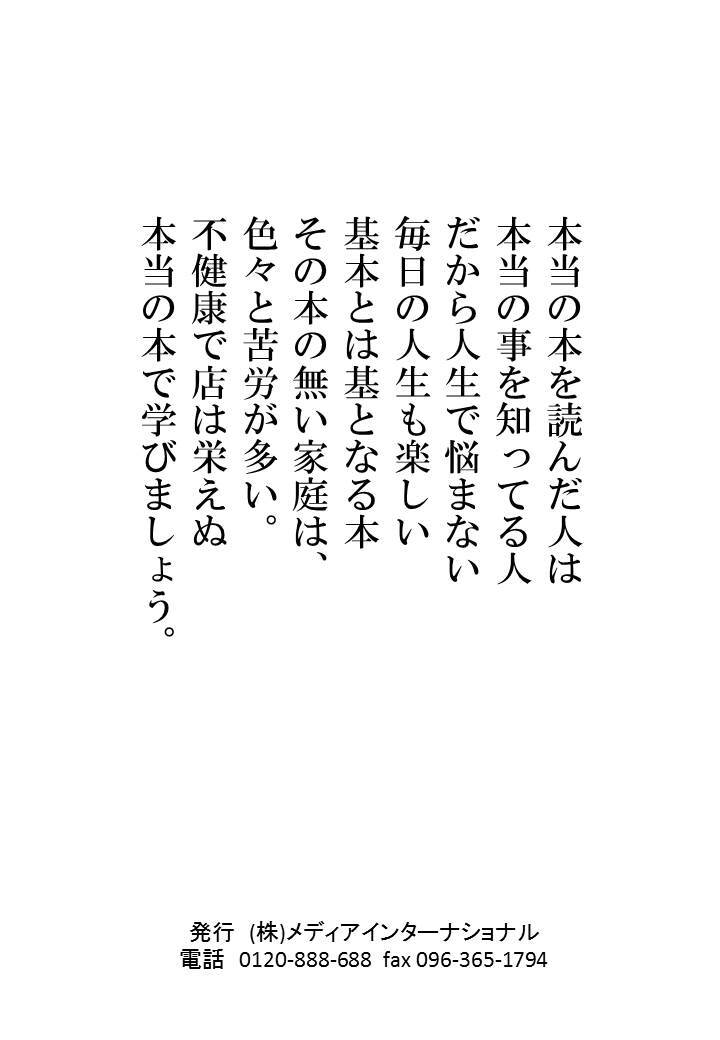 本当の本を読んだ人は
本当の事を知ってる人
だから人生で悩まない
毎日の人生も楽しい
基本とは基となる本
その本の無い家庭は、
色々と苦労が多い。
不健康で店は栄えぬ
本当の本で学びましょう。
発行　(株)メディアインターナショナル
電話　0120-888-688 fax 096-365-1794